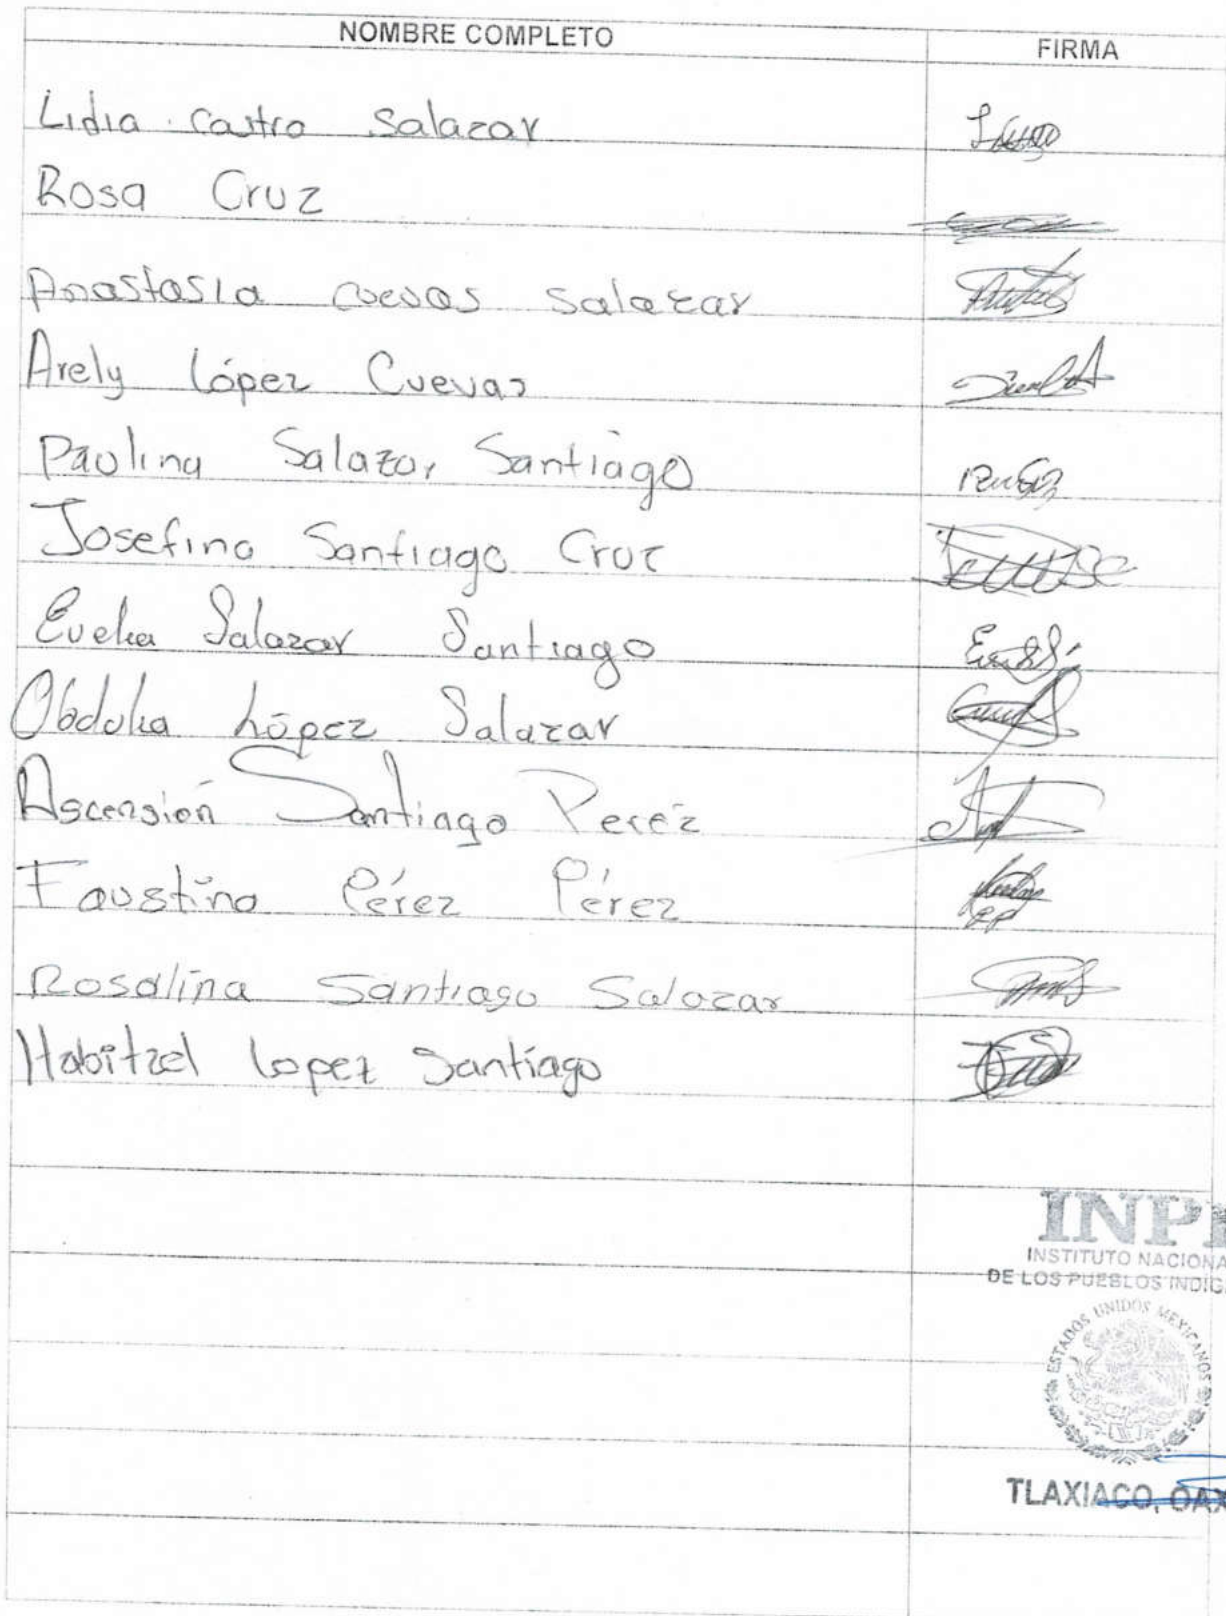 NOMBRE COMPLETO FIRMA
Lidia Castro Salazar
Rosa Cruz
Anastasia cuevas salazar
Arely López Cuevas
Paulina Salazar Santiago
Josefina Santiago Cruz
Evelia Salazar Santiago
Obdulia López Salazar
Ascensión Santiago Pereź
Faustino Pérez Pérez
Rosalina Santiago Salazar
Habitzel Lopez Santiago
INPI
INSTITUTO NACIONA
DE LOS PUEBLOS INDIG
ESTADOS UNIDOS MEXICANOS
TLAXIACO, OAX